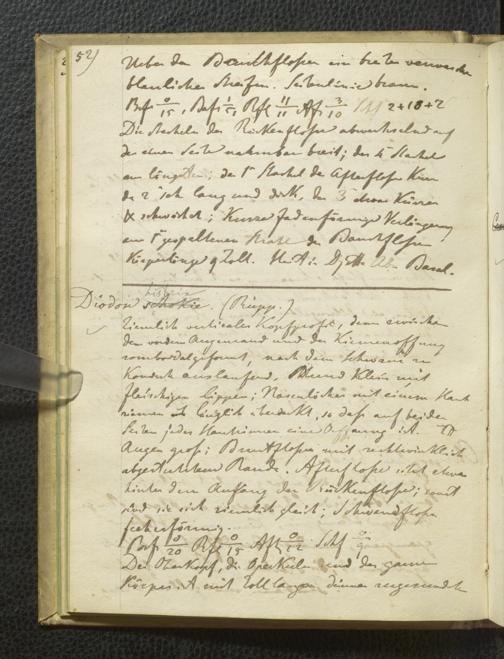 52)
Ueber den Bauchflossen ein breiter verwaschener
blaulicher Streifen. Seitenlinie braun.
Brf 0/15, Bf 1/5, Rf 11/11 Af 3/10 2+18+2
Die Stacheln der Rückenflosse abwechselnd auf
der einen Seite nahmbar breit; der 4 Stachel
am längsten; der 1 Stachel der Afterflosse kurz
der 2 sehr lang und dick, der 3 etwas kürzer
& schwächer; kurze fadenförmige Verlängerung
am 1 gespaltenen Strahl der Bauchflossen
Körperlänge 9 Zoll. Basel.
Diodon (Rüpp.)
Ziemlich verticales Kopfprofil, dann zwischen
dem vordern Augenrand und der Kiemenöffnung
nach dem Schwanz zu
Konisch auslaufend, Mund klein mit
fleischigen Lippen; Nasenlöcher mit einem Haut
riemen länglich bedeckt, so dass auf beiden
Seiten jedes Hautriemen eine Öffnung ist.
Augen gross; Brustflossen mit rechtwinklich
abgestutztem Rande. Afterflosse etwas
hinter dem Anfang der Rückenflosse; sonst
sind sie sich ziemlich gleich; Schwanzflosse
fächerförmig.
Brf 0/20 Rf 0/15 Af 0/12 Schf 0/9
Der Oberkopf, die Operkeln und der ganze
Körper ist mit Zoll langen dünnen